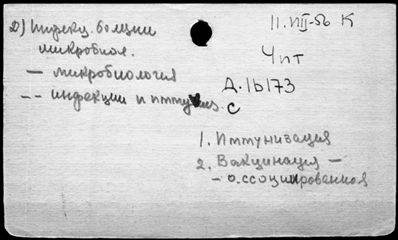 2) Инфекц. болезни
микробная.
— микробиология
-- инфекции и иммун. С
11.VIII-56 К
Чит
Д.16173
1. Иммунизация
2. Вакцинация —
— ассоциированная